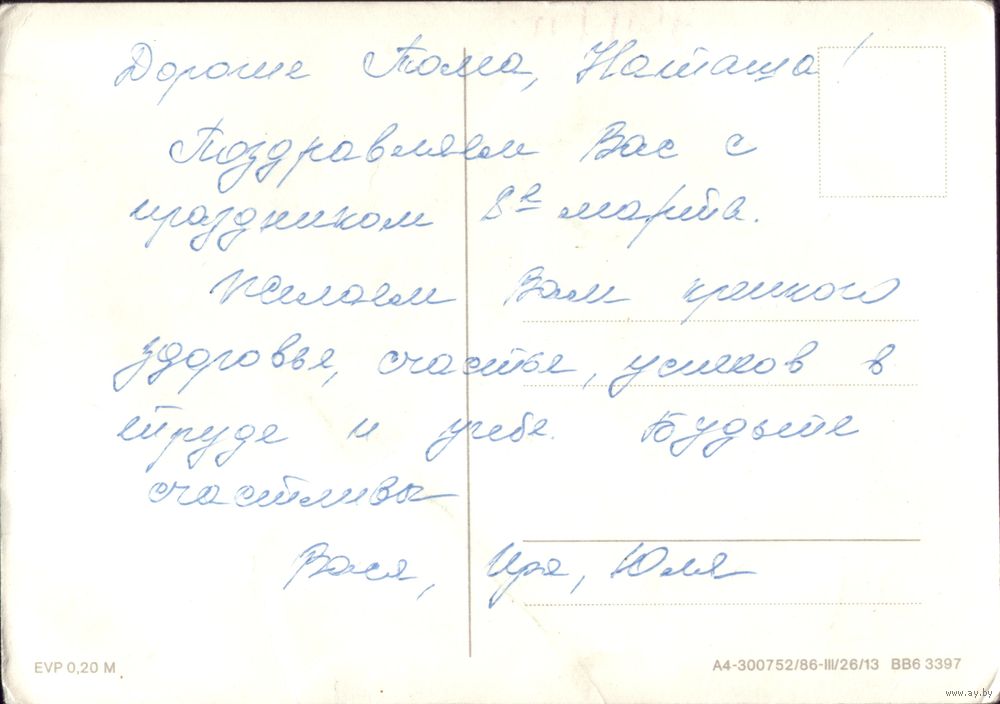 Дорогие Тома, Наташа!
Поздравляем Вас с
праздником 8е марта.
Желаем Вам крепкого
здоровья, счастья, успехов в
труде и учебе. Будьте
счастливы
Вася, Ира, Юля
EVP 0,20 M
A4-300752/86-III/26/13 BB6 3397
www.ay.by